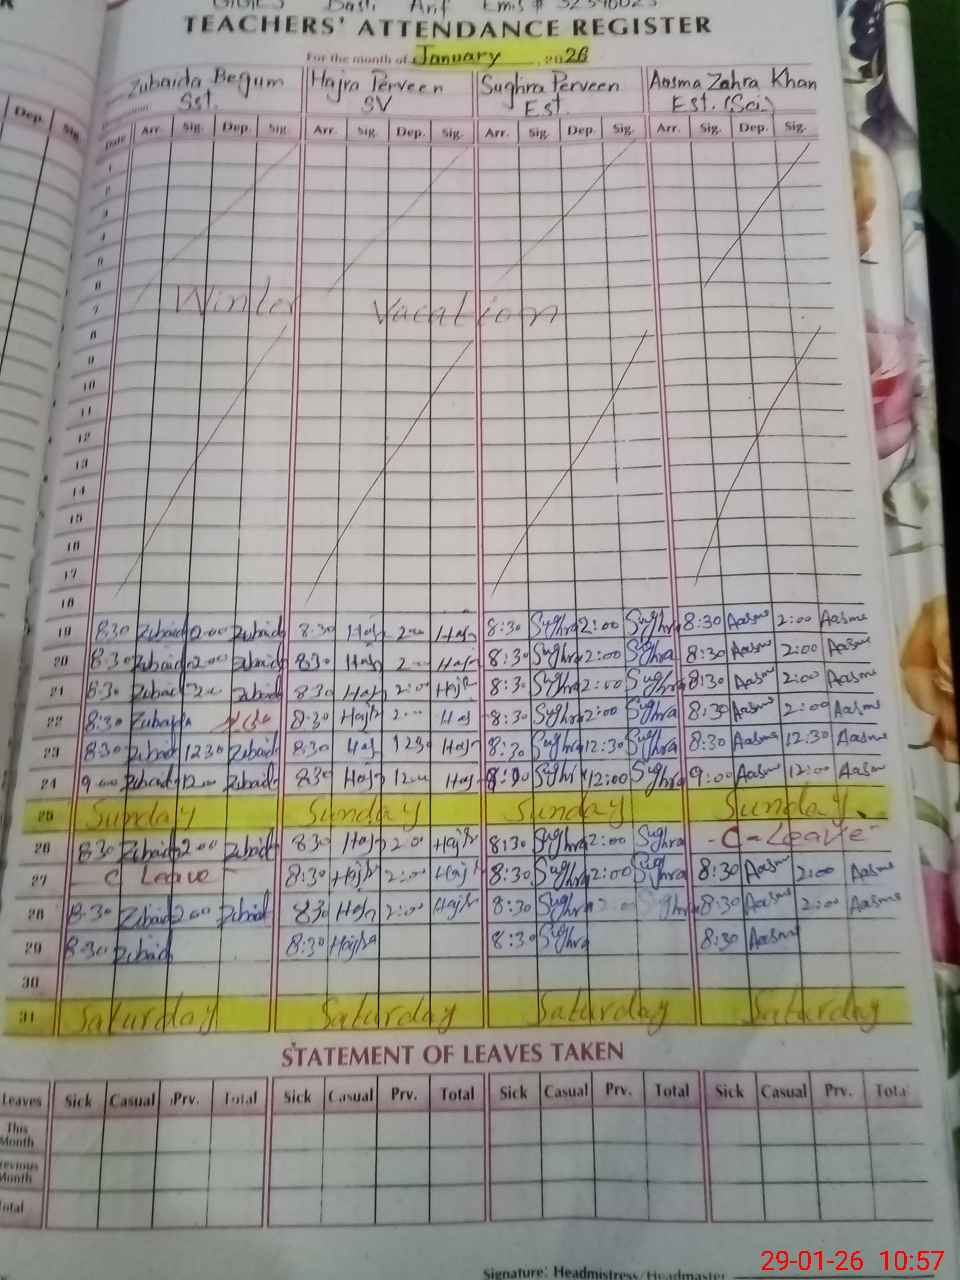 TEACHERS' ATTENDANCE REGISTER
For the month of January, 2026
Zubaida Begum Hajra Perveen Sughra Perveen Aasma Zahra Khan
Sst. SV Est. Est. (Sci)
Dep. Sig
Date Arr. Sig. Dep. Sig. Arr. Sig. Dep. Sig. Arr. Sig. Dep. Sig. Arr. Sig. Dep. Sig.
1
2
3
4
5
6
7 Winter Vacation
8
9
10
11
12
13
14
15
16
17
18
19 8:30 Zubaid 2:00 Zubaid 8:30 Haj 2:00 Haj 8:30 Sughra 2:00 Sughra 8:30 Aasma 2:00 Aasma
20 8:30 Zubaid 2:00 Zubaid 8:30 Haj 2:00 Haj 8:30 Sughra 2:00 Sughra 8:30 Aasma 2:00 Aasma
21 8:30 Zubaid 2:00 Zubaid 8:30 Haj 2:00 Hajr 8:30 Sughra 2:00 Sughra 8:30 Aasma 2:00 Aasma
22 8:30 Zubaida 8:30 Hajr 2:00 Haj 8:30 Sughra 2:00 Sughra 8:30 Aasma 2:00 Aasma
23 8:30 Zubaid 12:30 Zubaid 8:30 Haj 12:30 Haj 8:30 Sughra 12:30 Sughra 8:30 Aasma 12:30 Aasma
24 9:00 Zubaid 12:00 Zubaid 8:30 Haj 12:00 Haj Sughra 12:00 Sughra 9:00 Aasma 12:00 Aasma
25 Sunday Sunday Sunday Sunday
26 8:30 Zubaid 2:00 Zubaid 8:30 Haj 2:00 Hajr 8:30 Sughra 2:00 Sughra - C - Leave -
27 - C Leave - 8:30 Hajr 2:00 Hajr 8:30 Sughra 2:00 Sughra 8:30 Aasma 2:00 Aasma
28 8:30 Zubaid 2:00 Zubaid 8:30 Haj 2:00 Hajr 8:30 Sughra 2:00 Sughra 8:30 Aasma 2:00 Aasma
29 8:30 Zubaid 8:30 Hajra 8:30 Sughra 8:30 Aasma
30
31 Saturday Saturday Saturday Saturday
STATEMENT OF LEAVES TAKEN
Leaves Sick Casual Prv. Total Sick Casual Prv. Total Sick Casual Prv. Total Sick Casual Prv. Tota
This
Month
revious
Month
otal
29-01-26 10:57
Signature: Headmistress/Headmaster